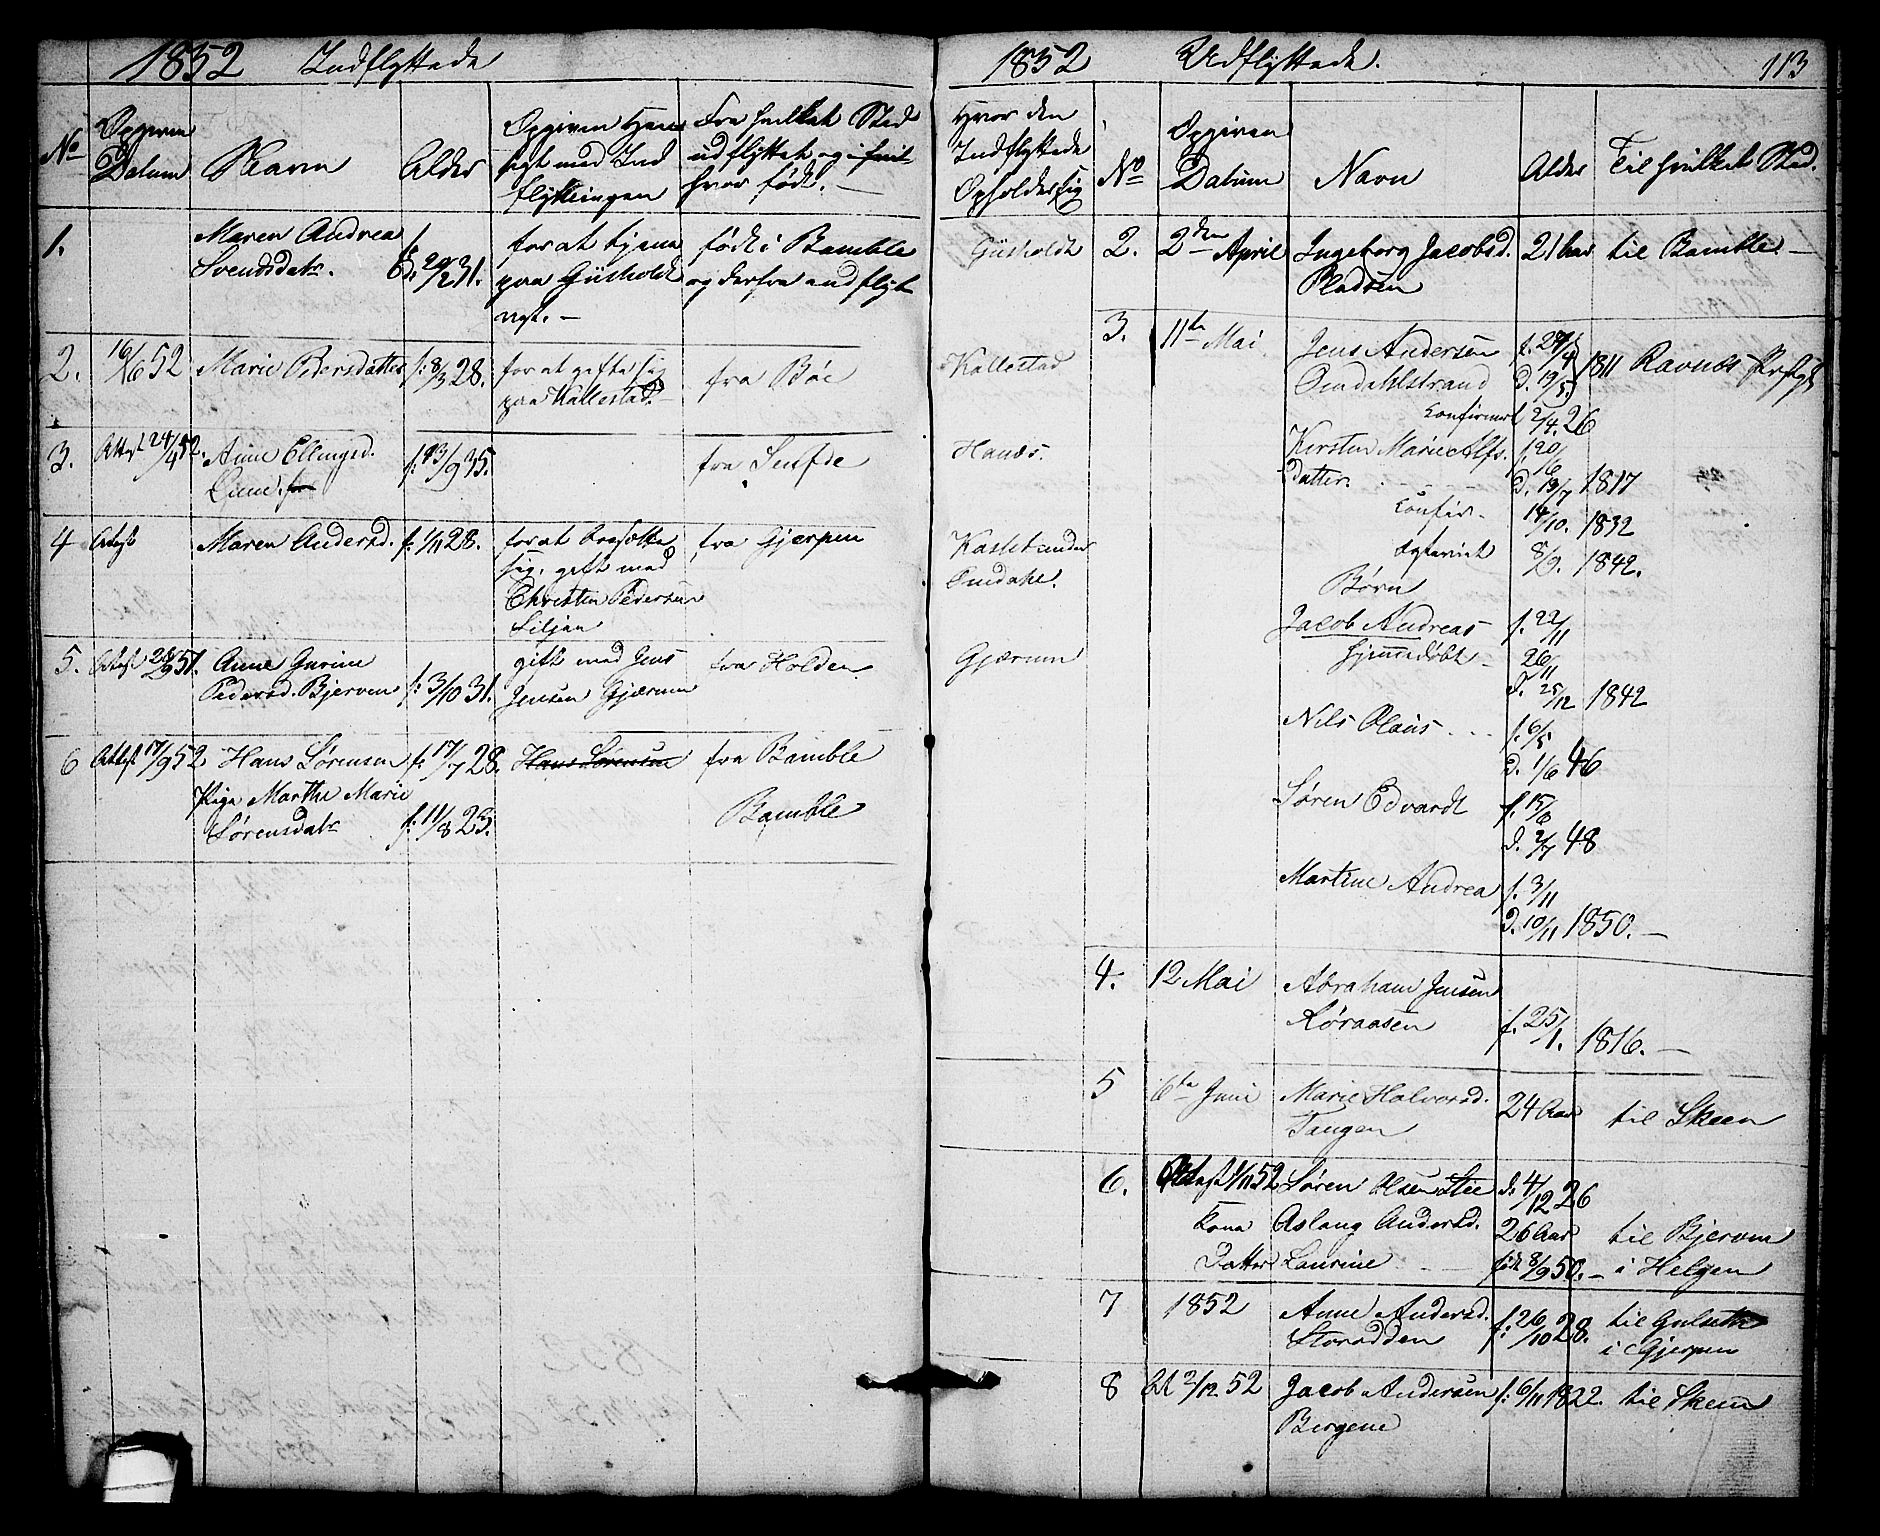 1852 Indflyttede
No
Opgiven Datum
Navn
Alder
Opgiven Hensigt med Indflytningen
Fra hvilket Sted udflyttet, og
hvor født. —
Hvor den Indflyttede Opholder sig
1.
Maren Andrea
Svendsdatr.
f.
D. 20/2 31.
for at tjene
paa Gusholdt
født i Bamble
og derfra udflyt
tet. —
Gusholdt
2. 16/6 52 Marie Pedersdatter f: 8/3 28. for at gifte sig
paa Kallestad.
fra Böe
Kallestad
3. Attest 24/4 52. Anne Ellingsd.
Lund
f. 13/9 35.
Hanæs.
4 Attest Maren Andersd. f. 1/11 28. for at bosætte
sig, gift med
Christen Pedersen
Siljan
fra Gjerpen
Kasset under
Omdahl.
5. Attest 51. Anne Gurine
Pedersd. Bjerven f: 3/10 31.
gift med Jens
Jensen Gjærum
fra Holden
Gjærum
6 Attest 17/9 52 Hans Sørensen f: 17/7 28. Hans Sørensen fra Bamble
Pige Marthe Marie
Sørensdatr f: 11/8 23. Bamble
1852 Udflyttede. 113
No
Opgiven Datum
Navn
Alder
Til hvilket Sted.
2. 2den April Ingeborg Jacobsd. 21 Aar til Bamble. —
Pladsen
3. 11te Mai. Jens Andersen
Omdahlstrand D. 19/5 1811 Ravnæs
Confirmert 2/4. 26
Kirsten Marie Alfs
datter. f. 20/6
D. 13/7 1817
Confir. 14/10. 1832
8/9. 1842.
Børn
Jacob Andreas f. 22/11
hjemmedøbt 26/11
D. 25/12 1842
Nils Olaus f. 6/5
D. 1/6 46
Søren Edvardt f. 15/6
D. 2/7 48
Martine Andrea f. 3/11
D. 10/11 1850. —
4. 12 Mai Abraham Jensen
Røraasen f. 25/1. 1816. —
5 6te Juni Marie Halvorsd.
Tangen 24 Aar til Skeen
6. Attest 1/11 52 Søren Olsen Stie D. 4/12 26
Kona Aslaug Andersd. 26 Aar til Bjerven
Datter Laurine født 8/9 50. — i Helgen
7 1852 Anne Andersd.
Storødden f. 26/10 28. til Gulseth
i Gjerpen
8 At 2/12 52 Jacob Andersen f: 6/11 1822. til Skeen
Bergene